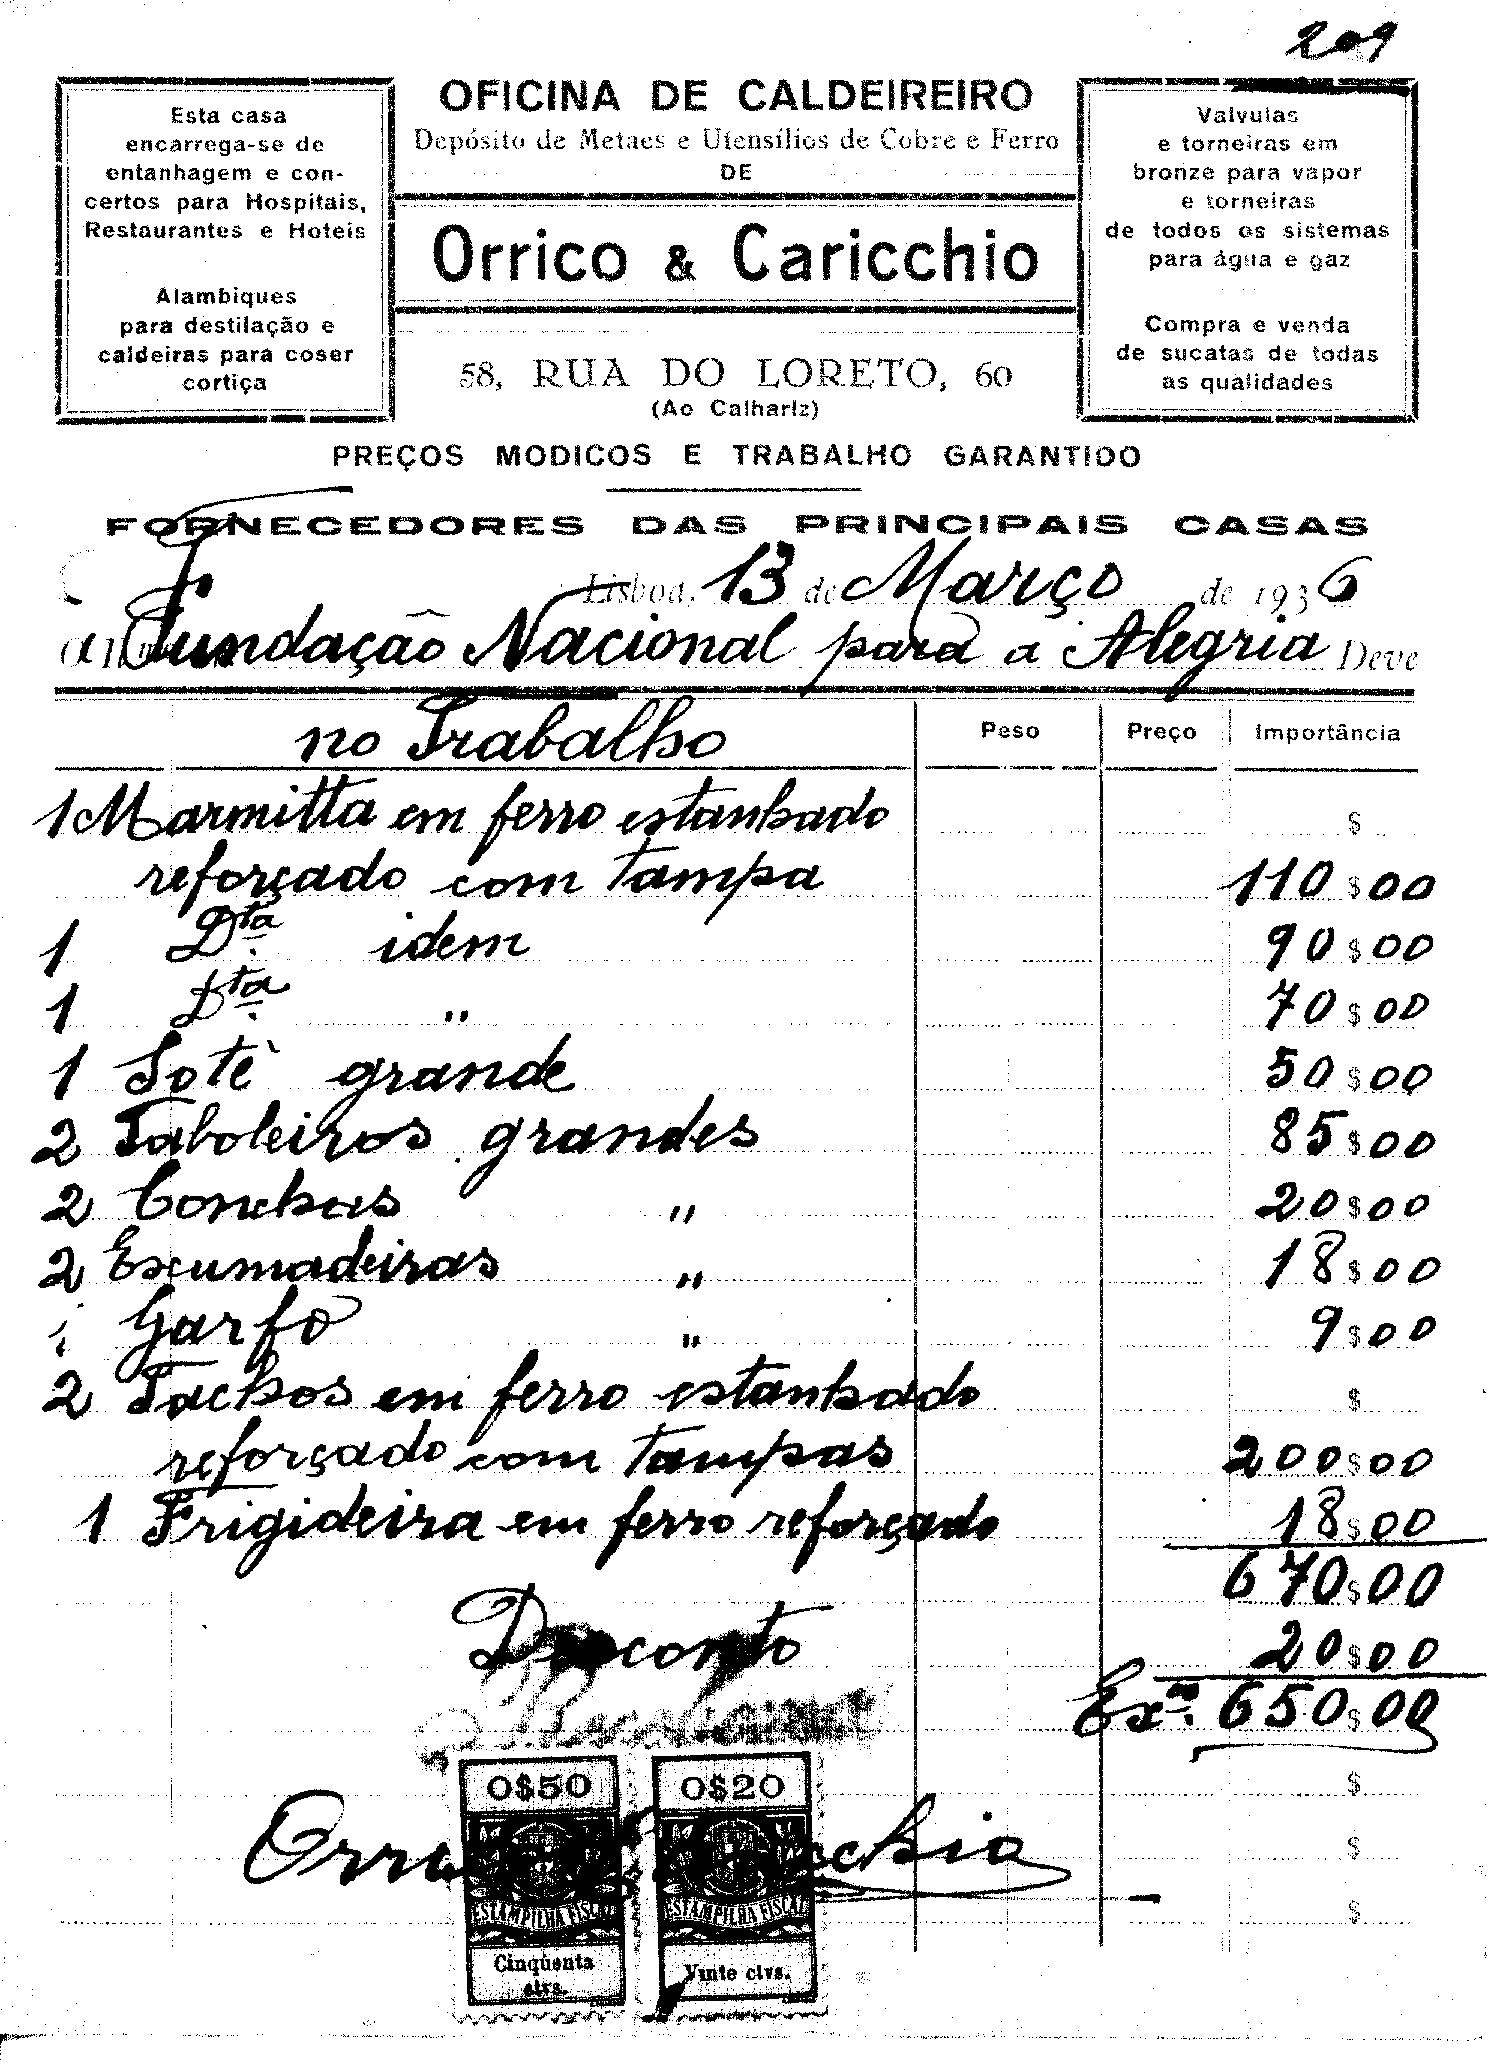 209
Esta casa
encarrega-se de
entanhagem e con-
certos para Hospitais,
Restaurantes e Hoteis
Alambiques
para destilação e
caldeiras para coser
cortiça
OFICINA DE CALDEIREIRO
Depósito de Metaes e Utensílios de Cobre e Ferro
DE
Orrico & Caricchio
58, RUA DO LORETO, 60
(Ao Calhariz)
Valvulas
e torneiras em
bronze para vapor
e torneiras
de todos os sistemas
para água e gaz
Compra e venda
de sucatas de todas
as qualidades
PREÇOS MODICOS E TRABALHO GARANTIDO
FORNECEDORES DAS PRINCIPAIS CASAS
Lisboa, 13 de Março de 1936
a Fundação Nacional para a Alegria Deve
no Trabalho Peso Preço Importância
1 Marmitta em ferro estanhado $
reforçado com tampa 110$00
1 Dta. idem 90$00
1 Dta. " 70$00
1 Sotè grande 50$00
2 Taboleiros grandes 85$00
2 Conchas " 20$00
2 Escumadeiras " 18$00
1 Garfo " 9$00
2 Tachos em ferro estanhado $
reforçado com tampas 200$00
1 Frigideira em ferro reforçado 18$00
670$00
Desconto 20$00
Exmo. 650$00
$
0$50 0$20
Orrico & Caricchio $
ESTAMPILHA FISCAL ESTAMPILHA FISCAL $
Cinqùenta Vinte ctvs.
ctvs.